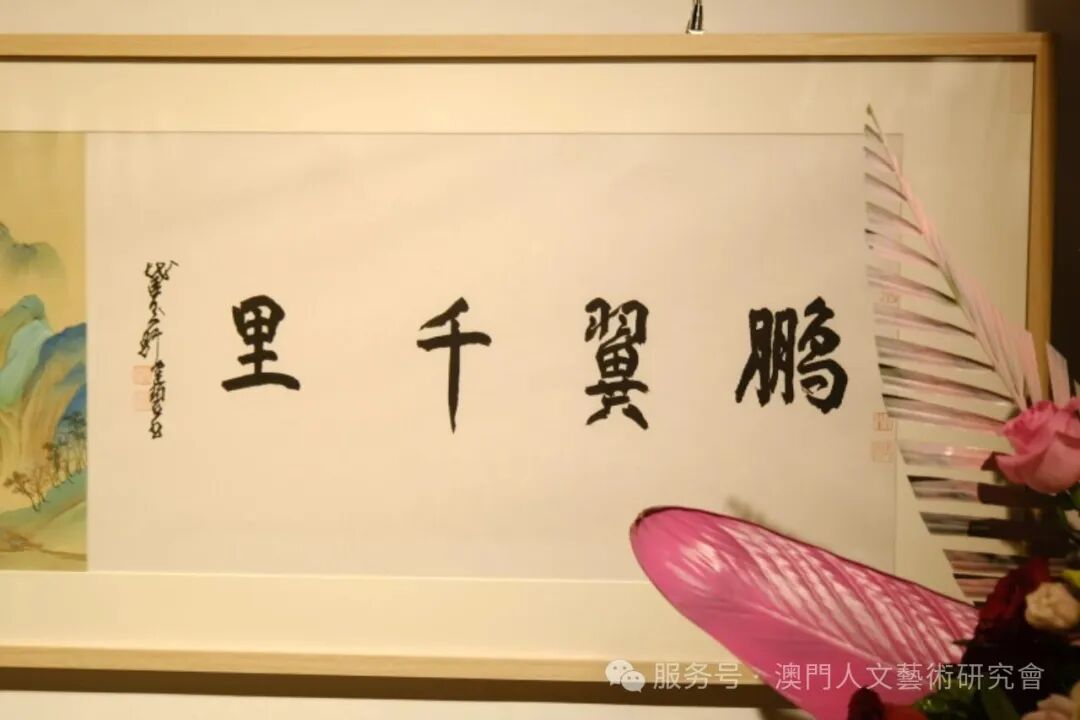 鹏翼千里
服务号 · 澳門人文藝術研究會